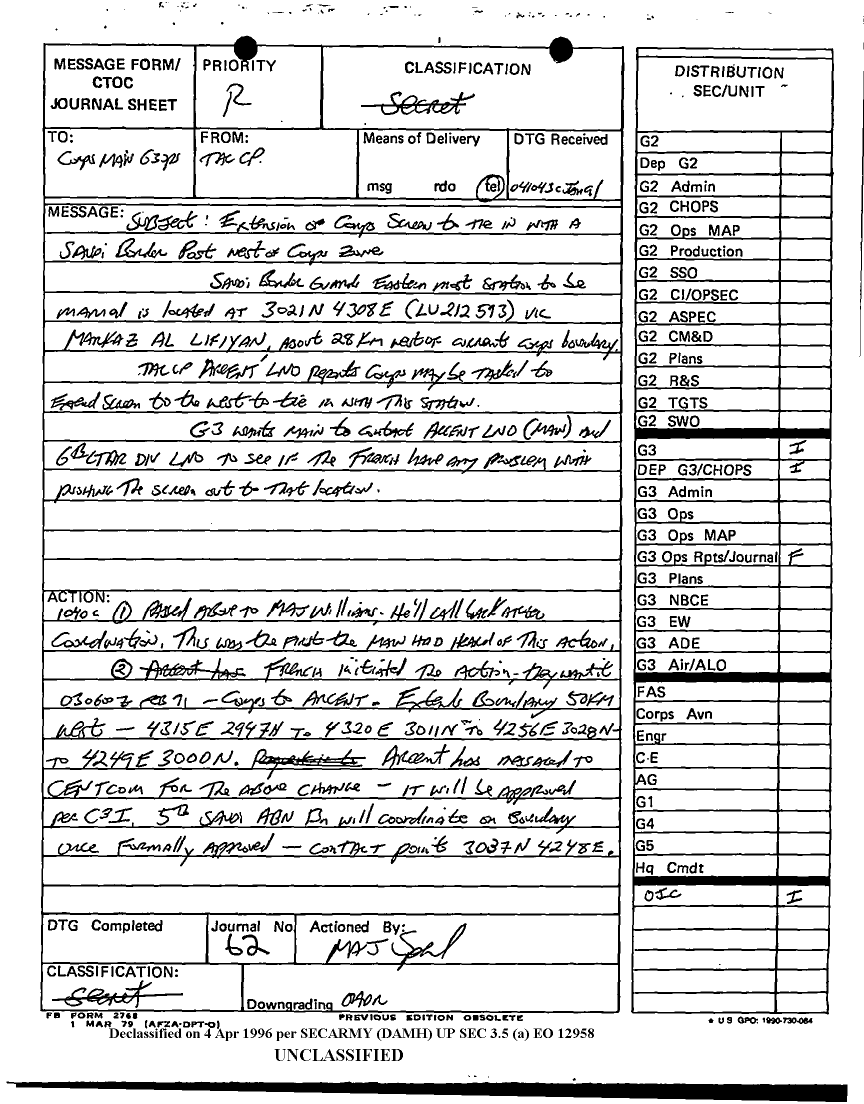 MESSAGE FORM/
CTOC
JOURNAL SHEET
PRIORITY
R
CLASSIFICATION
Secret
TO:
Corps MAIN G3 ops
FROM:
TAC CP.
Means of Delivery
msg rdo tel
DTG Received
041043c Jan 91
MESSAGE: SUBJect: Extension of Corps Screen to tie in with A
SAUDi Border Post west of Corps Zone
SAUDi Border Guards Eastern most station to be
manned is located AT 3021N 4308E (LU212593) vic
MARKAZ AL LIFIYAN, About 28 Km west of currents Corps boundary.
TACCP ARCENT LNO Reports Corps may be tasked to
Extend Screen to the west to tie in with This station.
G3 wants MAIN to Contact ARCENT LNO (MAIN) and
6th LTAR DIV LNO TO see IF The French have any problem with
pushing The screen out to That location.
ACTION:
1040c (1) Passed Above to MAJ Williams. He'll call back AFter
Coordination. This was the First the MAIN HAD HEARD OF This ACTION.
(2) Arcent has French initiated The Action - They want it
030600Z FEB 91 - Corps to ARCENT. Extends Boundary 50KM
west - 4315E 2947N To 4320E 3011N To 4256E 3028N -
to 4249E 3000N. ARcent has messaged to
CENTCOM For The Above change - IT will be Approved
per C3I. 5th SAUDI ABN Bn will coordinate on Boundary
once Formally Approved - contact point 3037N 4248E.
DTG Completed
Journal No.
62
Actioned By:
MAJ
CLASSIFICATION:
Secret
Downgrading OADR
FB FORM 2768
1 MAR 79 (AFZA-DPT-O)
PREVIOUS EDITION OBSOLETE
Declassified on 4 Apr 1996 per SECARMY (DAMH) UP SEC 3.5 (a) EO 12958
UNCLASSIFIED
DISTRIBUTION
SEC/UNIT
G2
Dep G2
G2 Admin
G2 CHOPS
G2 Ops MAP
G2 Production
G2 SSO
G2 CI/OPSEC
G2 ASPEC
G2 CM&D
G2 Plans
G2 R&S
G2 TGTS
G2 SWO
G3 I
DEP G3/CHOPS I
G3 Admin
G3 Ops
G3 Ops MAP
G3 Ops Rpts/Journal F
G3 Plans
G3 NBCE
G3 EW
G3 ADE
G3 Air/ALO
FAS
Corps Avn
Engr
C-E
AG
G1
G4
G5
Hq Cmdt
OIC I
★ US GPO: 1990-730-084